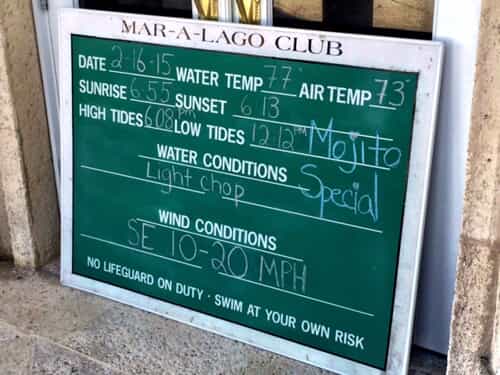 MAR-A-LAGO CLUB
DATE 2-16-15 WATER TEMP 77° AIR TEMP 73°
SUNRISE 6:55 SUNSET 6:13
HIGH TIDES 6:08 PM LOW TIDES 12:12 PM Mojito
WATER CONDITIONS Special
Light chop
WIND CONDITIONS
SE 10-20 MPH
NO LIFEGUARD ON DUTY · SWIM AT YOUR OWN RISK